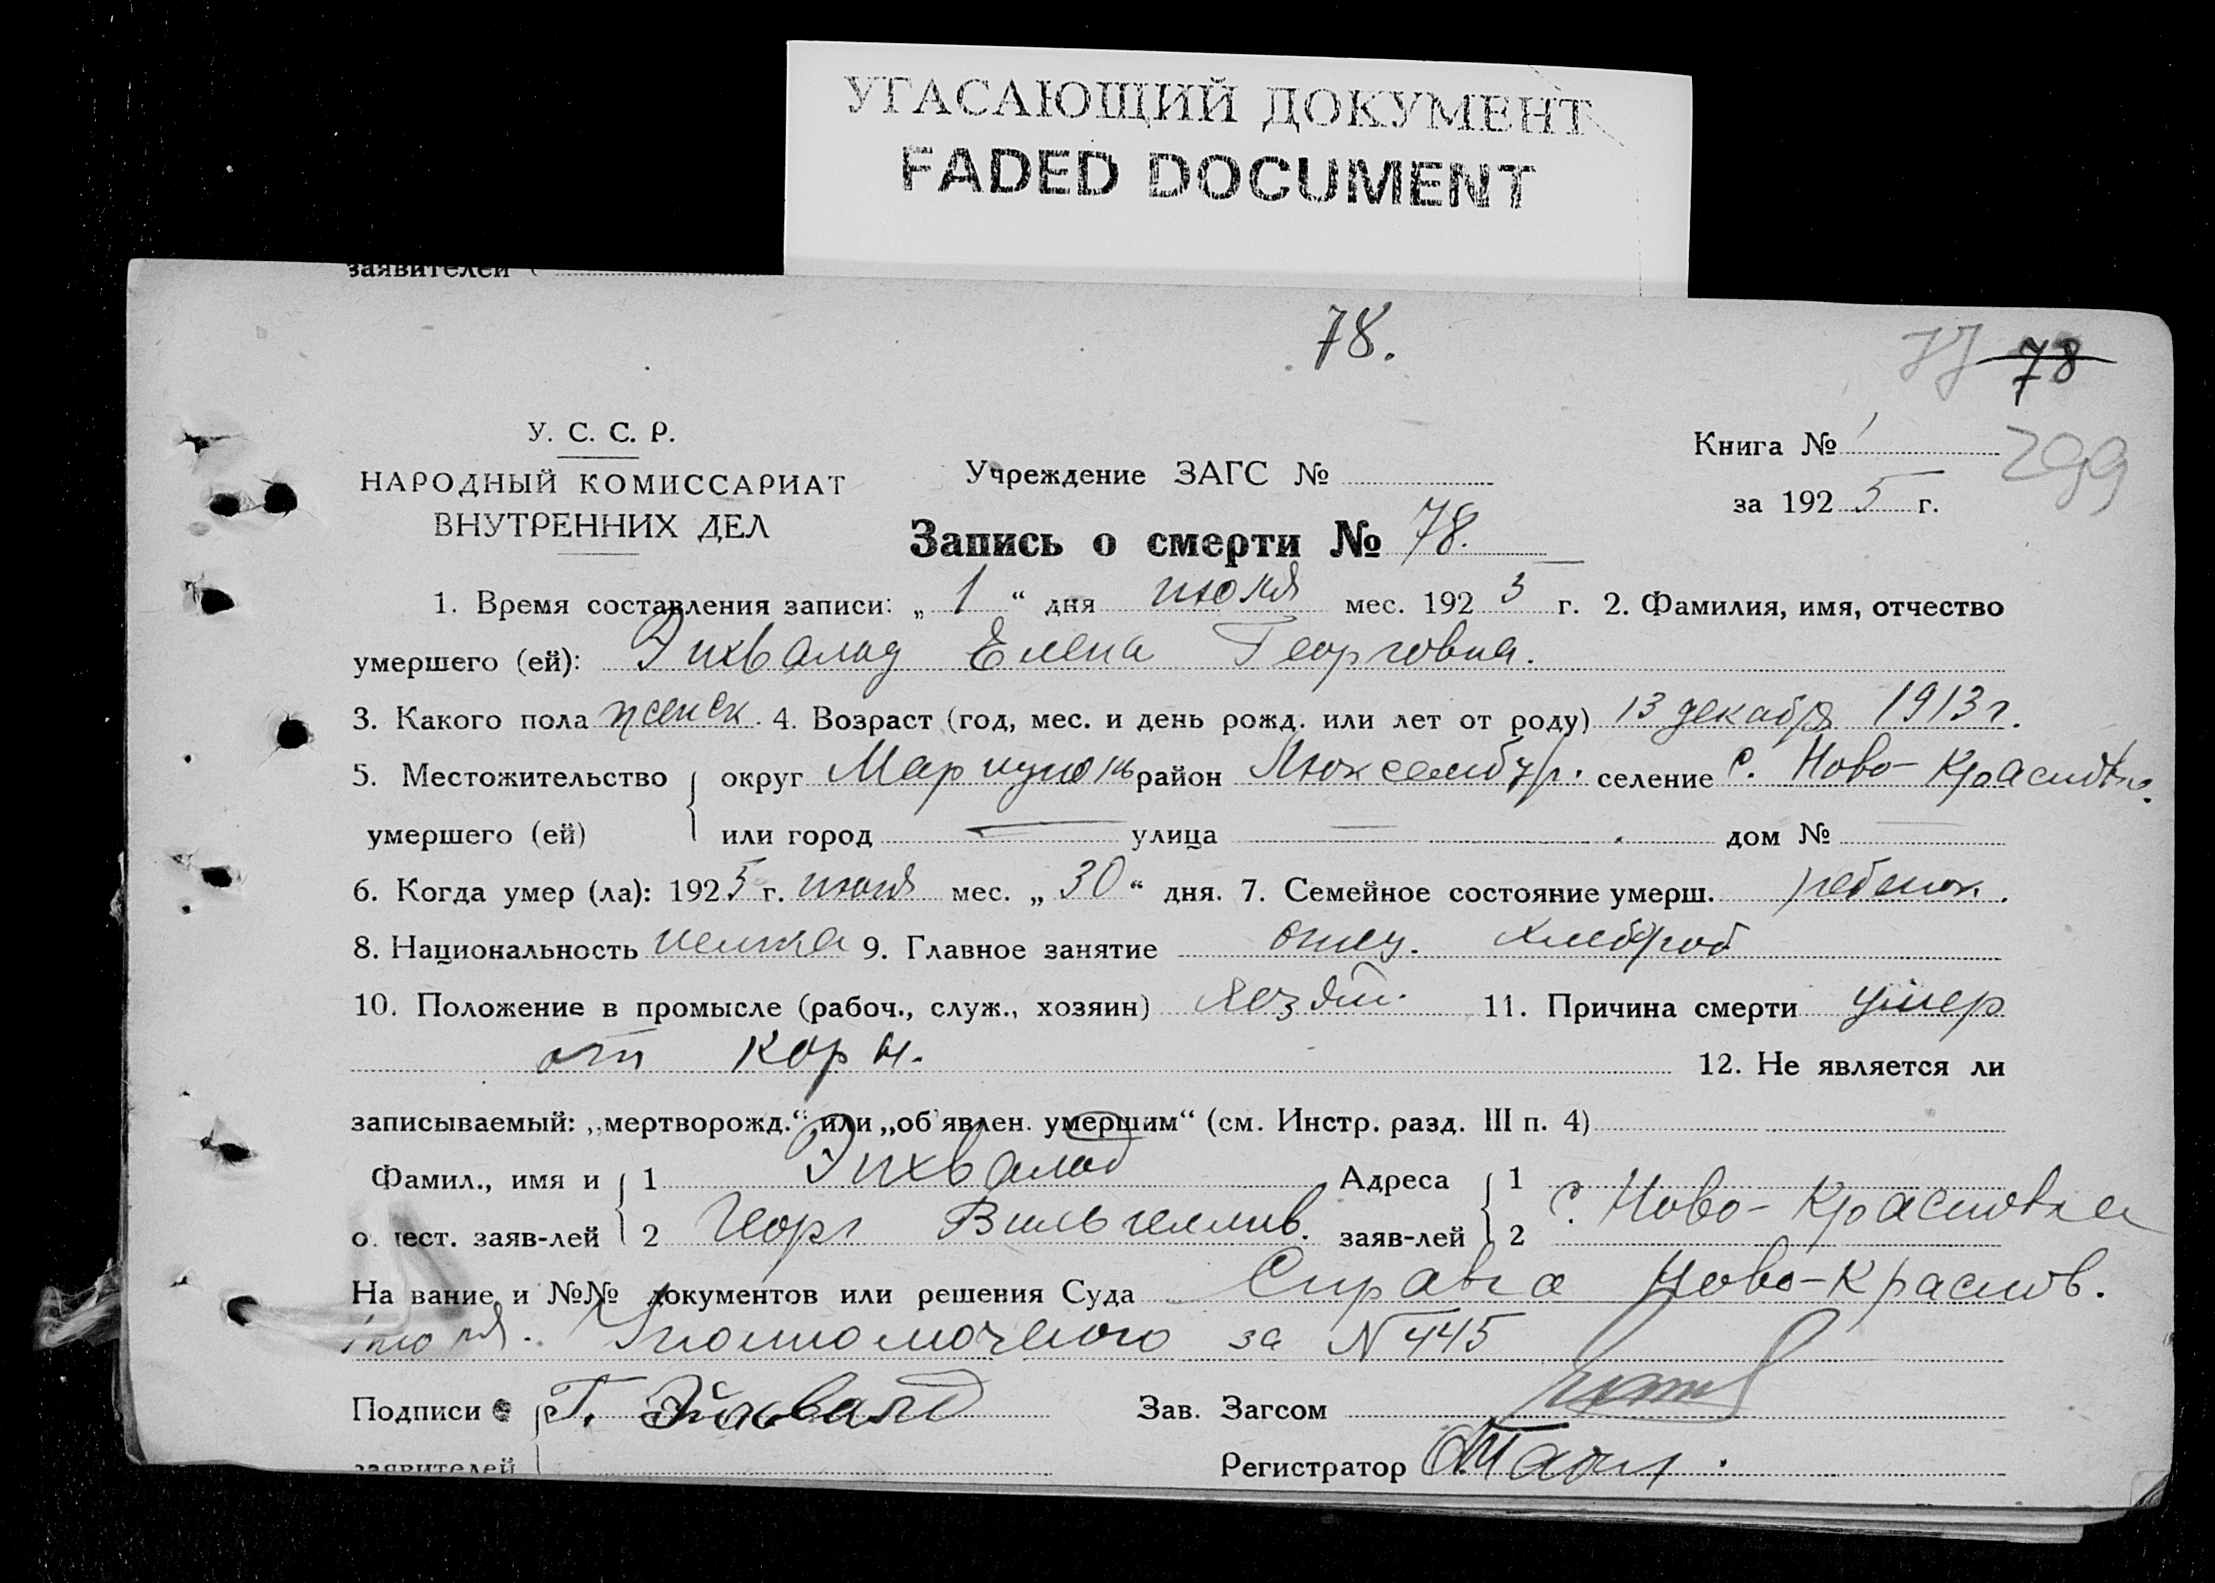 УГАСАЮЩИЙ ДОКУМЕНТ
FADED DOCUMENT
заявителей
78.
77 78
У. С. С. Р.
НАРОДНЫЙ КОМИССАРИАТ
ВНУТРЕННИХ ДЕЛ
Учреждение ЗАГС №
Книга № 1
299
за 1925 г.
Запись о смерти № 78.
1. Время составления записи: „ 1 “ дня июля мес. 1925 г. 2. Фамилия, имя, отчество
умершего (ей): Эихвальд Елена Георговна.
3. Какого пола женск. 4. Возраст (год, мес. и день рожд. или лет от роду) 13 декабря 1913 г.
5. Местожительство округ Мариуполь район Люксембург. селение с. Ново-Красновка.
умершего (ей) или город — улица — дом № —
6. Когда умер (ла): 1925 г. июня мес. „ 30 “ дня. 7. Семейное состояние умерш. ребенок.
8. Национальность немка 9. Главное занятие отец. хлебороб
10. Положение в промысле (рабоч., служ., хозяин) хозяин. 11. Причина смерти умер
от кори. 12. Не является ли
записываемый: „мертворожд.“ или „об'явлен. умершим“ (см. Инстр. разд. III п. 4)
Фамил., имя и 1 Эихвальд Адреса 1
о чест. заяв-лей 2 Георг Вильгельмов. заяв-лей 2 с. Ново-Красновка
На вание и №№ документов или решения Суда Справка Ново-Краснов.
Уполномоченого за № 445
Подписи Г. Эйхвальд Зав. Загсом
заявителей Регистратор